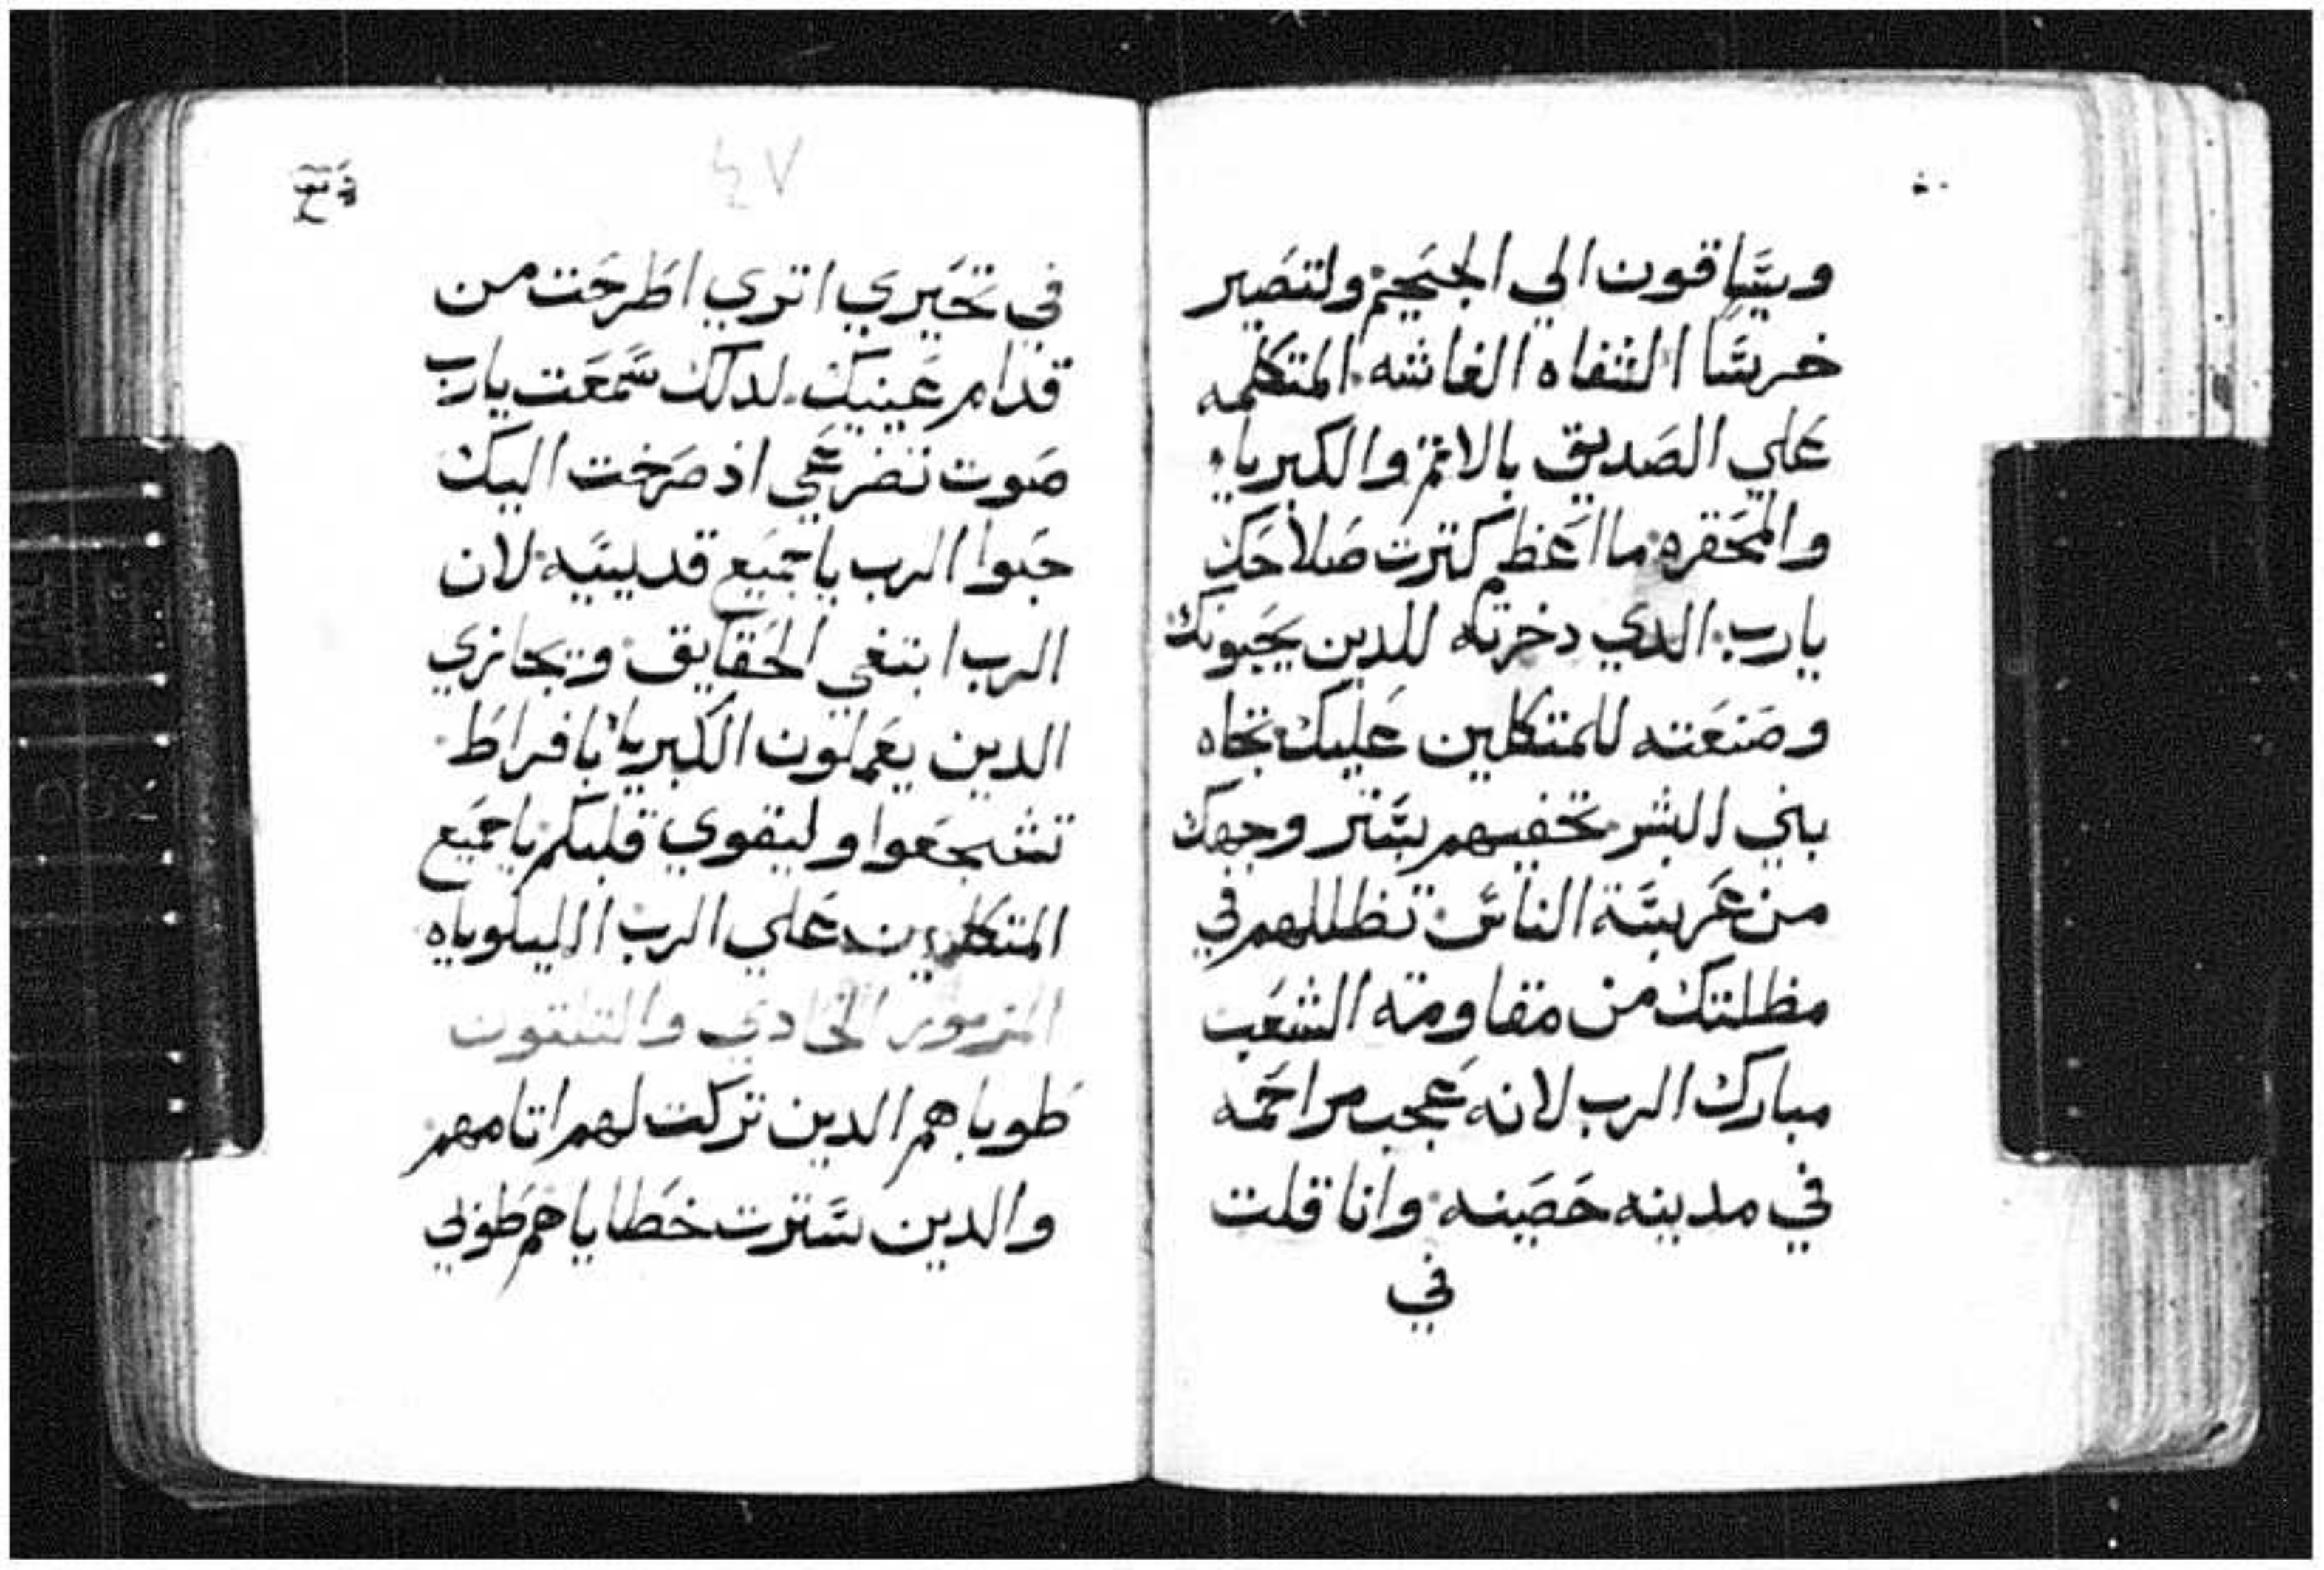 ويساقون الي الجحيم ولتصير
خرسا الشفاه الغاشه المتكلمه
علي الصديق بالاثم والكبرياء
والمحقره ما اعظم كترت صلاحك
يارب الدي دخرته للدين يحبونك
وصنعته للمتكلين عليك تجاه
بني البشر تخفيهم بستر وجهك
من عربسة الناس تظللهم في
مظلتك من مقاومة الشعب
مبارك الرب لانه عجب مراحمه
في مدينه حصينه وانا قلت
في
٤٧
في تحيري اتري اطرحت من
قدام عينيك لدلك سمعت يارب
صوت تضرعي اذ صرخت اليك
حبوا الرب ياجميع قديسيه لان
الرب ابتغي الحقايق ويجازي
الدين يعملون الكبرياء بافراط
تشجعوا وليقوي قلبكم ياجميع
المتكلين علي الرب الليلوياه
المزمور الحادي والتلتون
طوباهم الدين تركت لهم اتامهم
والدين سترت خطاياهم طوبي